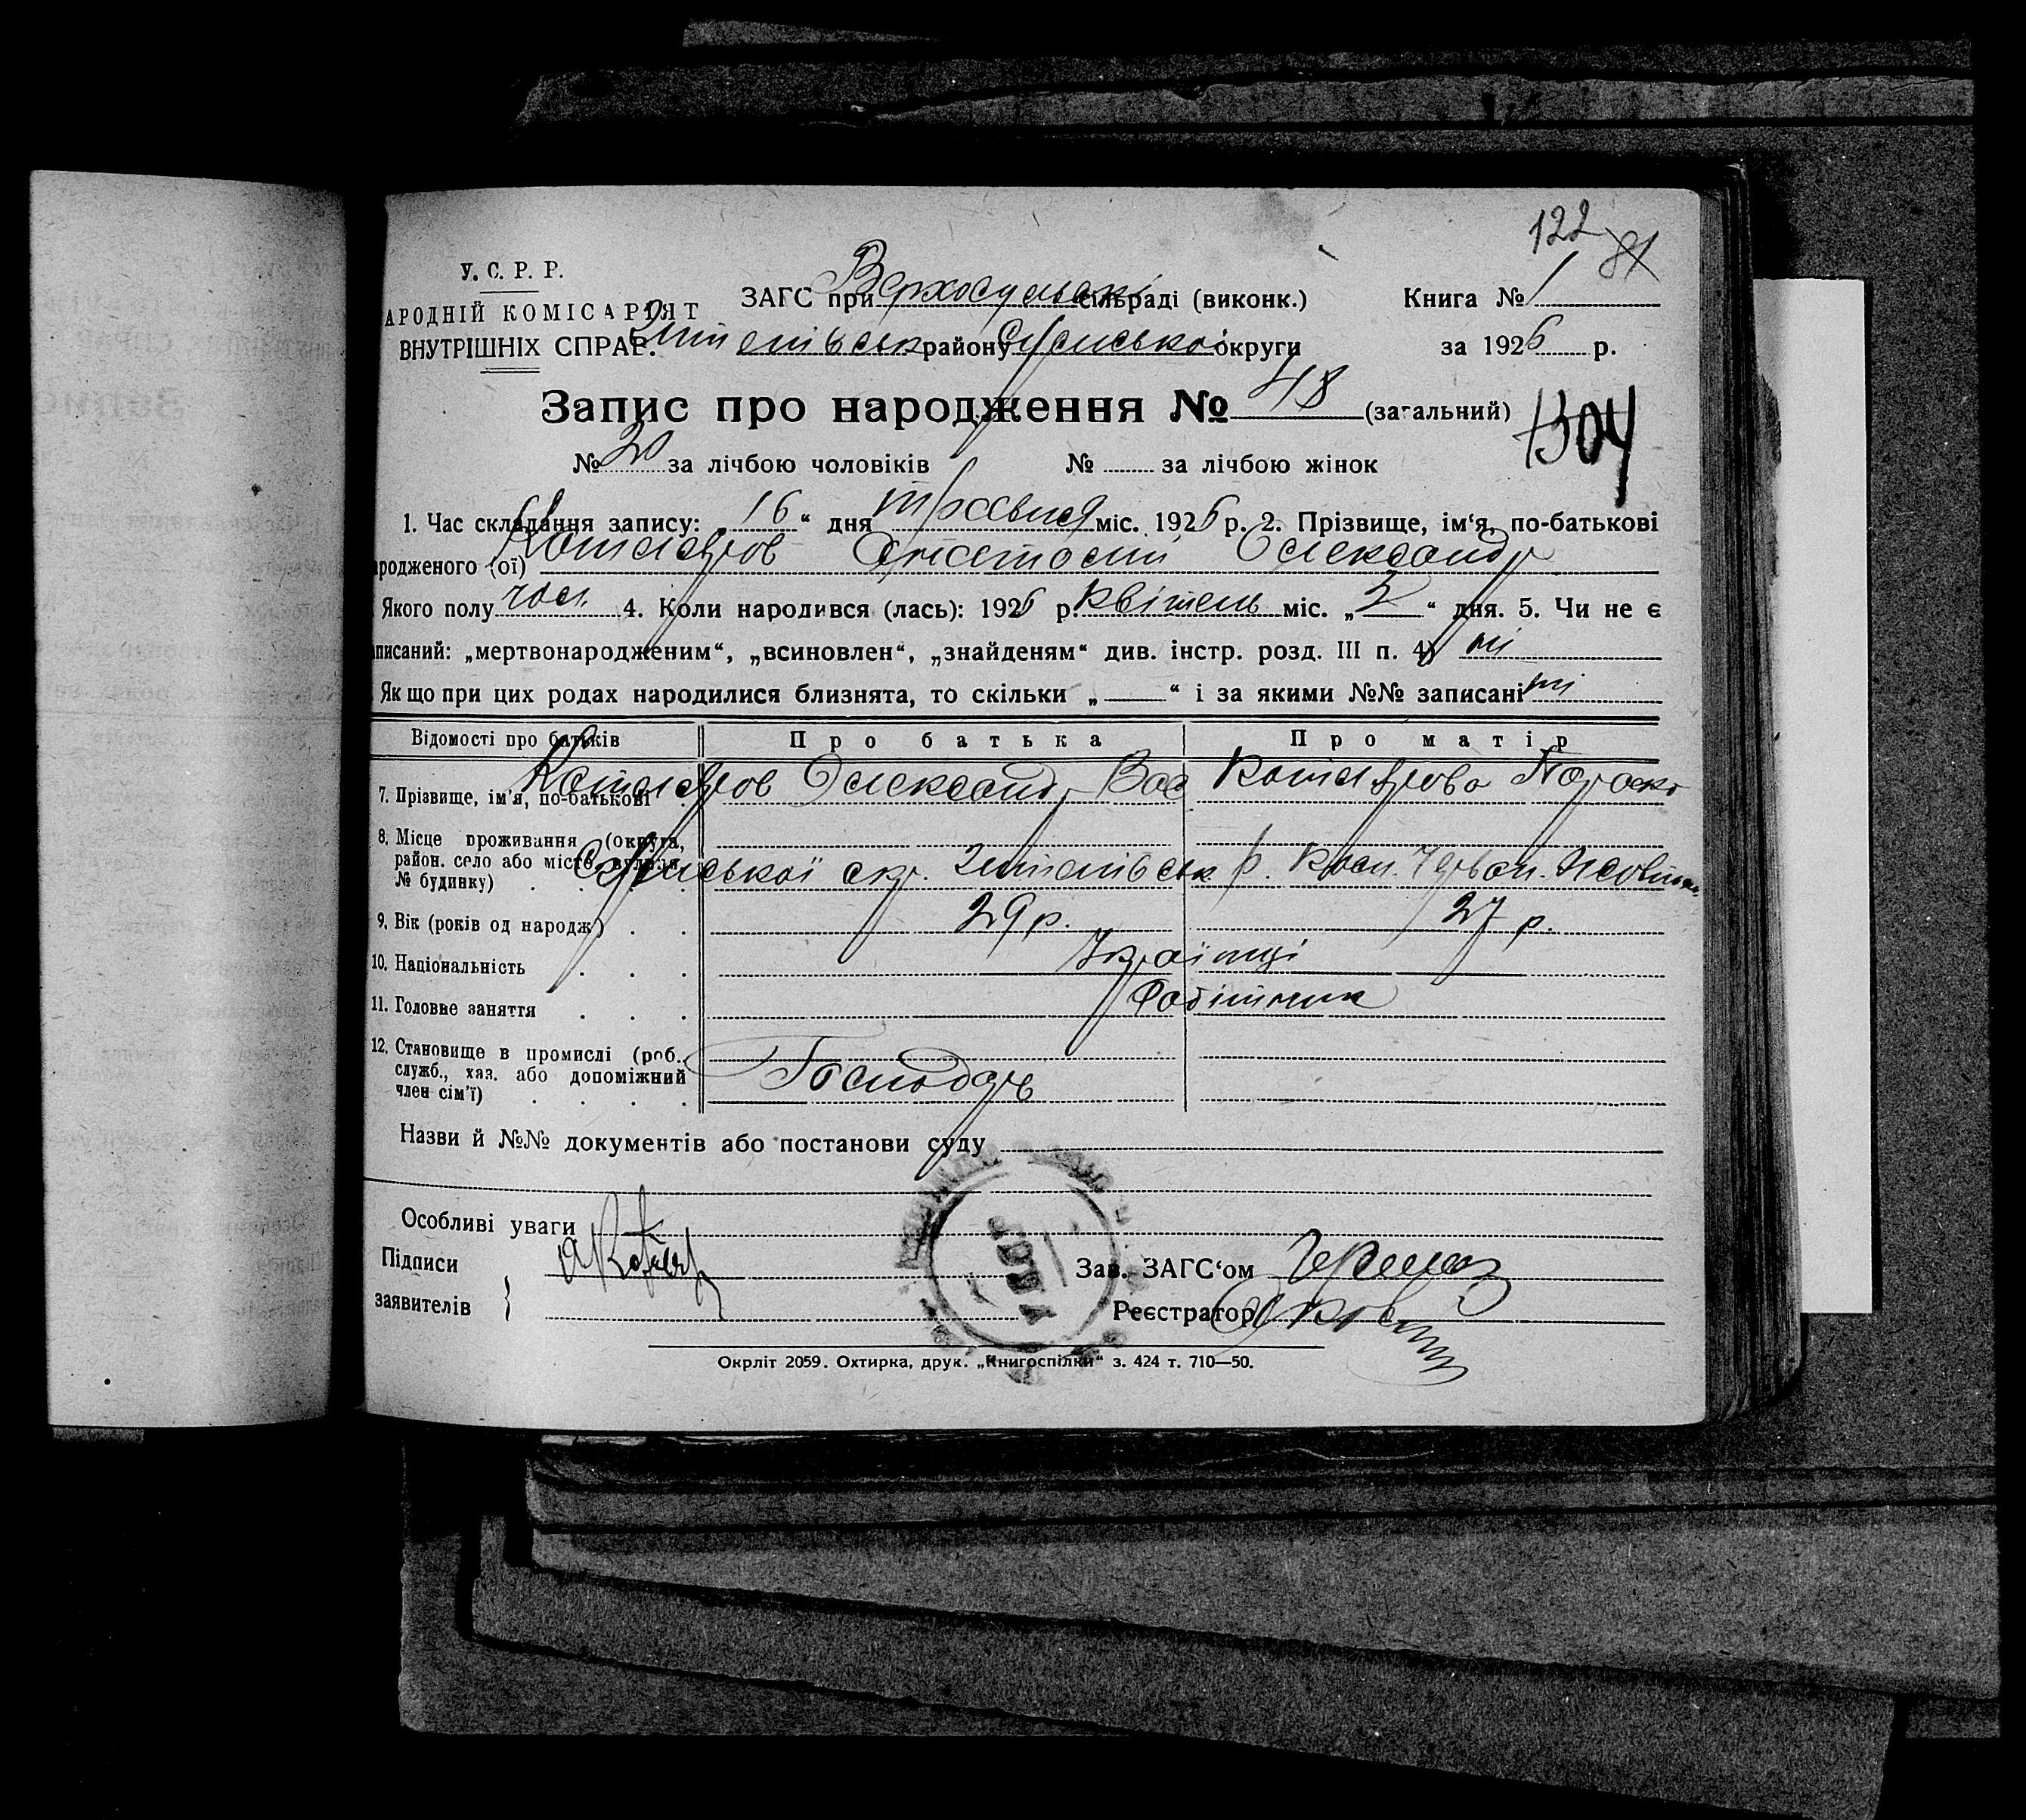 122 81
У. С. Р. Р.
АРОДНІЙ КОМІСАРІЯТ
ВНУТРІШНІХ СПРАВ.
ЗАГС при Верхосульські сільраді (виконк.)
Книга № 1
Штепівськ району Сумської округи
за 1926 р.
Запис про народження № 48 (загальний)
1304
№ 20 за лічбою чоловіків № за лічбою жінок
1. Час складання запису: „16“ дня травня міс. 1926 р. 2. Прізвище, ім‘я, по-батькові
ародженого (ої) Олександр
Якого полу чол. 4. Коли народився (лась): 1926 р. квітень міс. „2“ дня. 5. Чи не є
аписаний: „мертвонародженим“, „всиновлен“, „знайденям“ див. інстр. розд. III п. 4) ні
Якщо при цих родах народилися близнята, то скільки „ “ і за якими №№ записані ні
Відомості про батьків Про батька Про матір
7. Прізвище, ім‘я, по-батькові Олександр Вас
8. Місце проживання (округа, район. село або місто, вулиця, № будинку) Сумської окр. Штепівськ р.
9. Вік (років од народж) 29 р. 27 р.
10. Національність Українці
11. Головне заняття Робітник
12. Становище в промислі (роб., служб., хаз. або допоміжний член сім‘ї) Господарь
Назви й №№ документів або постанови суду
Особливі уваги
Підписи
Зав. ЗАГС‘ом
заявителів
Реєстратор
Окрліт 2059. Охтирка, друк. „Книгоспілки“ з. 424 т. 710—50.